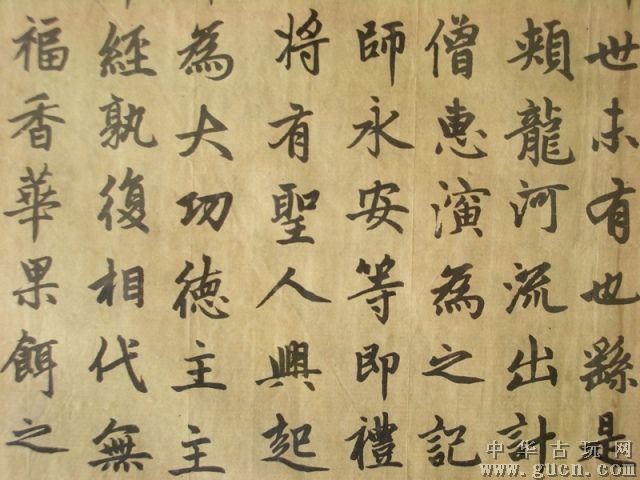 世未有也繇是
頰龍河流出計
僧惠演為之記
師永安等即禮
将有聖人興起
為大功徳主主
經孰復相代無
福香華果餌之
中华古玩网
www.gucn.com